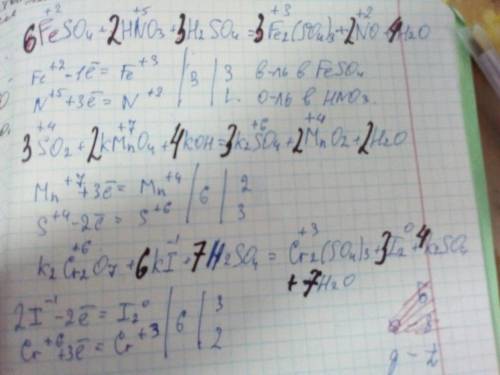 6Fe⁺²SO₄+2HN⁺⁵O₃+3H₂SO₄=3Fe₂⁺³(SO₄)₃+2N⁺²O+4H₂O
Fe⁺²-1ē=Fe⁺³ | 3 | 3 в-ль в FeSO₄
N⁺⁵+3ē=N⁺² | | 1. о-ль в HNO₃.
3S⁺⁴O₂+2KMn⁺⁷O₄+4KOH=3K₂S⁺⁶O₄+2Mn⁺⁴O₂+2H₂O
Mn⁺⁷+3ē=Mn⁺⁴ | 6 | 2
S⁺⁴-2ē=S⁺⁶ | | 3
K₂Cr₂⁺⁶O₇+6KI⁻¹+7H₂SO₄=Cr₂⁺³(SO₄)₃+3I₂⁰+4K₂SO₄
+7H₂O
2I⁻¹-2ē=I₂⁰ | 6 | 3
Cr⁺⁶+3ē=Cr⁺³ | | 2